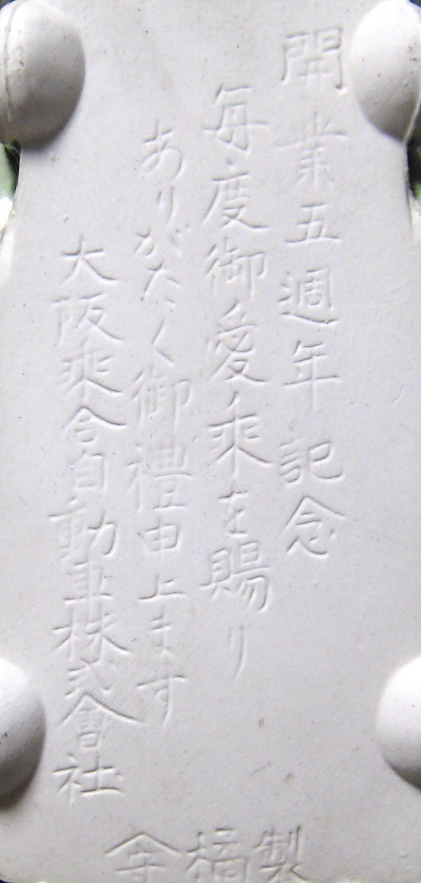 開業五週年記念
毎度御愛乗を賜り
ありがたく御禮申上ます
大阪乘合自動車株式會社
橘製